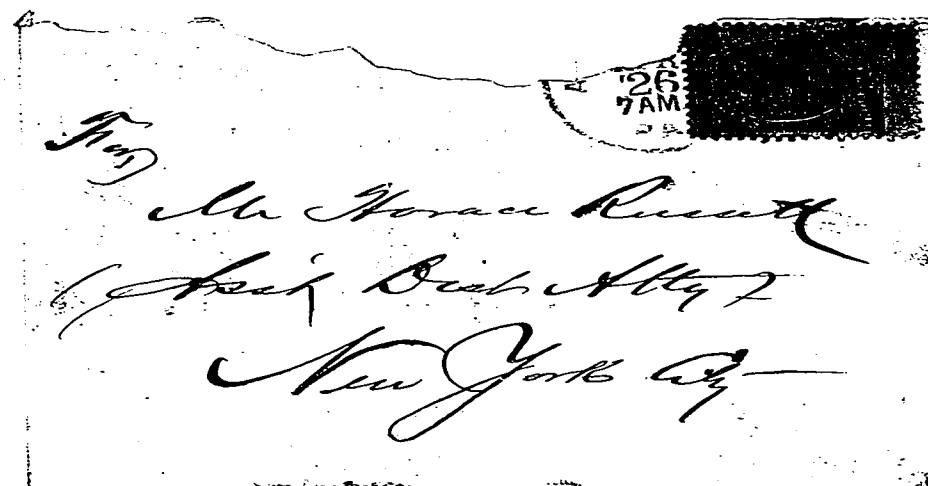 26
7 AM
Mr Horace Russell
Asst Dist Atty
New York City